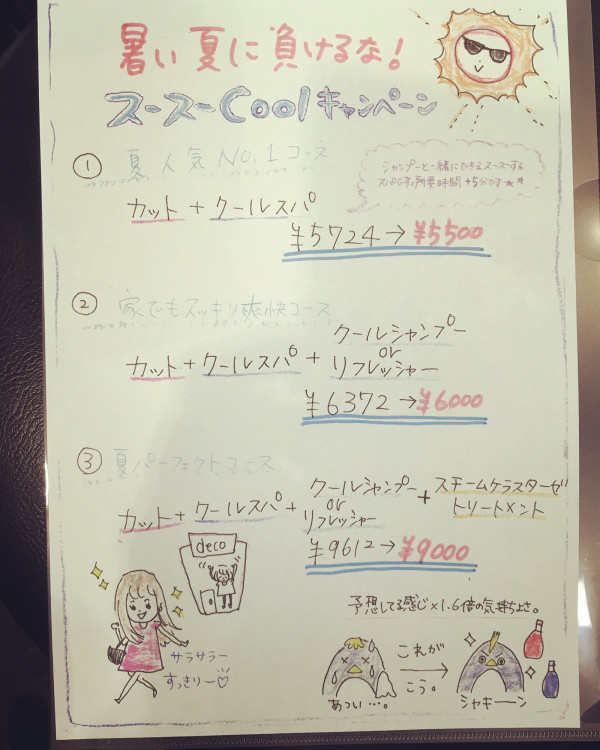 暑い夏に負けるな!
スースーCoolキャンペーン
① 夏人気NO.1コース
シャンプーと一緒にできるスースーする
スパです。所要時間+5分です★★
カット+クールスパ
¥5724→¥5500
② 家でもスッキリ爽快コース
クールシャンプー
or
カット+クールスパ+リフレッシャー
¥6372→¥6000
③ 夏パーフェクトコース
カット+クールスパ+クールシャンプー
or
リフレッシャー
+スチームケラスターゼ
トリートメント
¥9612→¥9000
deco
サラサラー
すっきりー♡
予想してる感じ×1.6倍の気持ちよさ。
あつい…。
これが
こう。
シャキーン